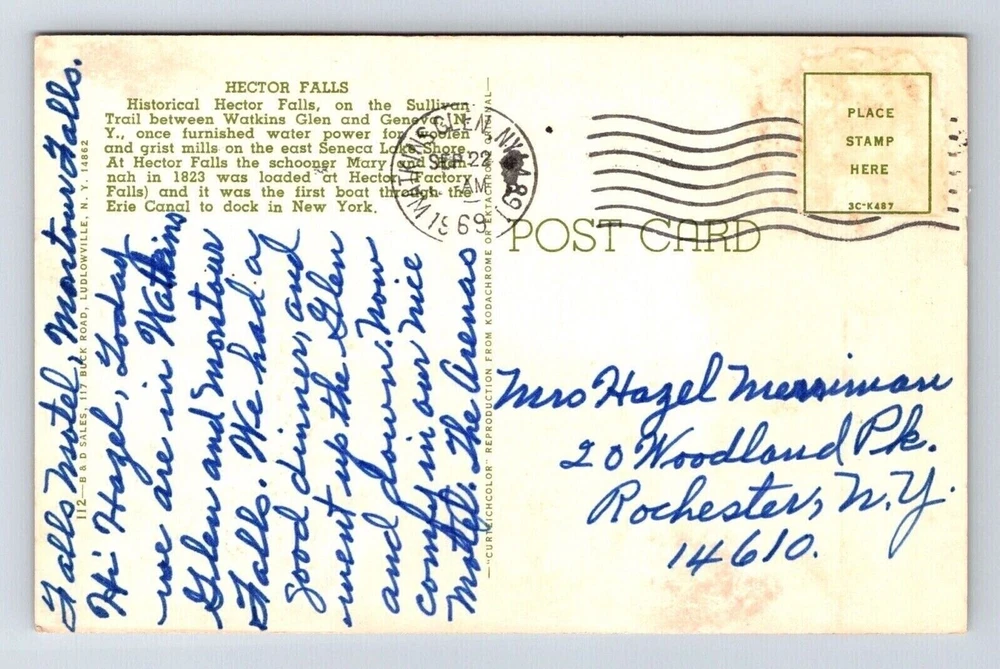 HECTOR FALLS
Historical Hector Falls, on the Sullivan
Trail between Watkins Glen and Geneva, N.
Y., once furnished water power for woolen
and grist mills on the east Seneca Lake Shore.
At Hector Falls the schooner Mary and Han-
nah in 1823 was loaded at Hector (Factory
Falls) and it was the first boat through the
Erie Canal to dock in New York.
112—B & D SALES, 117 BUCK ROAD, LUDLOWVILLE, N. Y. 14882
Falls Motel, Montour Falls.
Hi Hazel, Today
we are in Watkins
Glen and Montour
Falls. We had a
good dinner, and
went up the Glen
and down. Now
comfy in our nice
Motel. The Arenas
—"CURTEICHCOLOR" REPRODUCTION FROM KODACHROME OR EKTACHROME ORIGINAL—
WATKINS GLEN, N.Y. 14891
SEP 22
AM
1969
PLACE
STAMP
HERE
3C-K487
POST CARD
Mrs Hazel Merriman
20 Woodland Pk.
Rochester, N.Y.
14610.